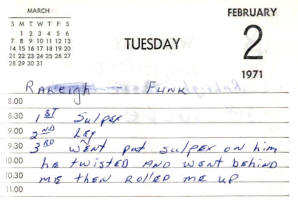 MARCH
S M T W T F S
1 2 3 4 5 6
7 8 9 10 11 12 13
14 15 16 17 18 19 20
21 22 23 24 25 26 27
28 29 30 31
TUESDAY
FEBRUARY
2
1971
RALEIGH — FUNK
8:00
8:30 1ST Sulpex
9:00 2ND Leg
9:30 3RD WENT put Sulpex on him
10:00 he twisted AND went behind
10:30 me then rolled me up
11:00